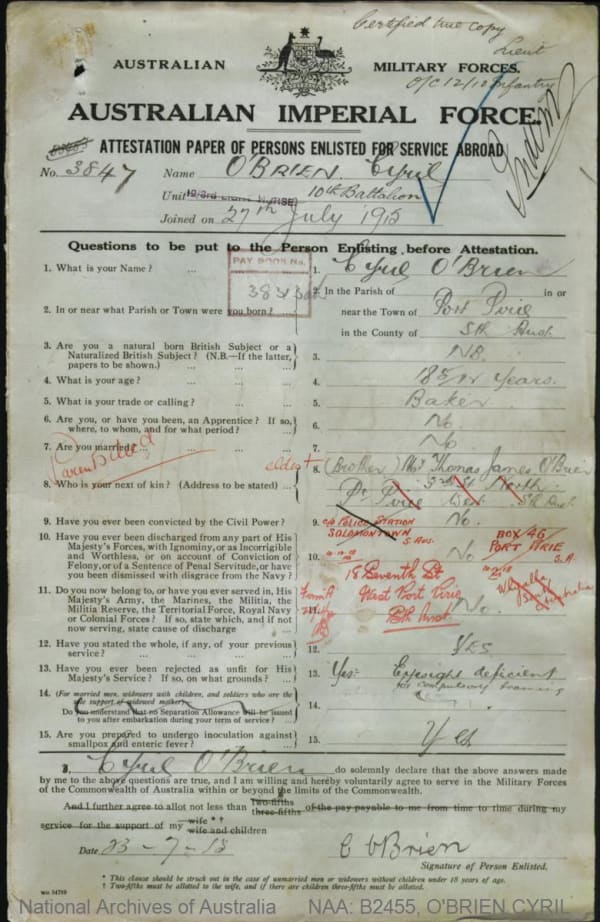 Certified true copy
Lieut
O/C 12/10 Infantry
AUSTRALIAN MILITARY FORCES.
AUSTRALIAN IMPERIAL FORCE.
ATTESTATION PAPER OF PERSONS ENLISTED FOR SERVICE ABROAD
No. 3847 Name O'BRIEN. Cyril
Unit 10th Battalion
Joined on 27th July 1915
Questions to be put to the Person Enlisting before Attestation.
PAY BOOK No.
1. What is your Name? ... ... 1. Cyril O'Brien
2. In or near what Parish or Town were you born? ... 2. In the Parish of in or
near the Town of Port Pirie
in the County of Sth Aust.
3. Are you a natural born British Subject or a
Naturalized British Subject? (N.B.—If the latter,
papers to be shown.) ... ... 3. NB.
4. What is your age? ... ... 4. 18 5/12 years.
5. What is your trade or calling? ... ... 5. Baker
6. Are you, or have you been, an Apprentice? If so,
where, to whom, and for what period? ... ... 6. No.
7. Are you married? ... ... 7. No
Parents Dead
eldest
8. Who is your next of kin? (Address to be stated) ... 8. (Brother) Mr Thomas James O'Brien
3rd St North
Pt Pirie West Sth Aust.
c/o POLICE STATION
SOLOMONTOWN
S. AUS.
BOX 46
PORT PIRIE
S.A.
9. Have you ever been convicted by the Civil Power? ... 9. No.
10. Have you ever been discharged from any part of His
Majesty's Forces, with Ignominy, or as Incorrigible
and Worthless, or on account of Conviction of
Felony, or of a Sentence of Penal Servitude, or have
you been dismissed with disgrace from the Navy? ... 10. No
18 Seventh St
West Port Pirie
Sth Aust.
Whyalla
Australia
Form A
11. Do you now belong to, or have you ever served in, His
Majesty's Army, the Marines, the Militia, the
Militia Reserve, the Territorial Force, Royal Navy
or Colonial Forces? If so, state which, and if not
now serving, state cause of discharge ... 11. No.
12. Have you stated the whole, if any, of your previous
service? ... ... 12. YES
13. Have you ever been rejected as unfit for His
Majesty's Service? If so, on what grounds? ... 13. Yes. Eyesight deficient
for compulsory training
14. (For married men, widowers with children, and soldiers who are the
sole support of widowed mother)—
Do you understand that no Separation Allowance will be issued
to you after embarkation during your term of service? ... 14.
15. Are you prepared to undergo inoculation against
smallpox and enteric fever? ... ... 15. Yes
I, Cyril O'Brien do solemnly declare that the above answers made
by me to the above questions are true, and I am willing and hereby voluntarily agree to serve in the Military Forces
of the Commonwealth of Australia within or beyond the limits of the Commonwealth.
And I further agree to allot not less than two-fifths three-fifths of the pay payable to me from time to time during my
service for the support of my wife * † wife and children
Date 23-7-15 C O'Brien
Signature of Person Enlisted.
* This clause should be struck out in the case of unmarried men or widowers without children under 18 years of age.
† Two-fifths must be allotted to the wife, and if there are children three-fifths must be allotted.
National Archives of Australia NAA: B2455, O'BRIEN CYRIL